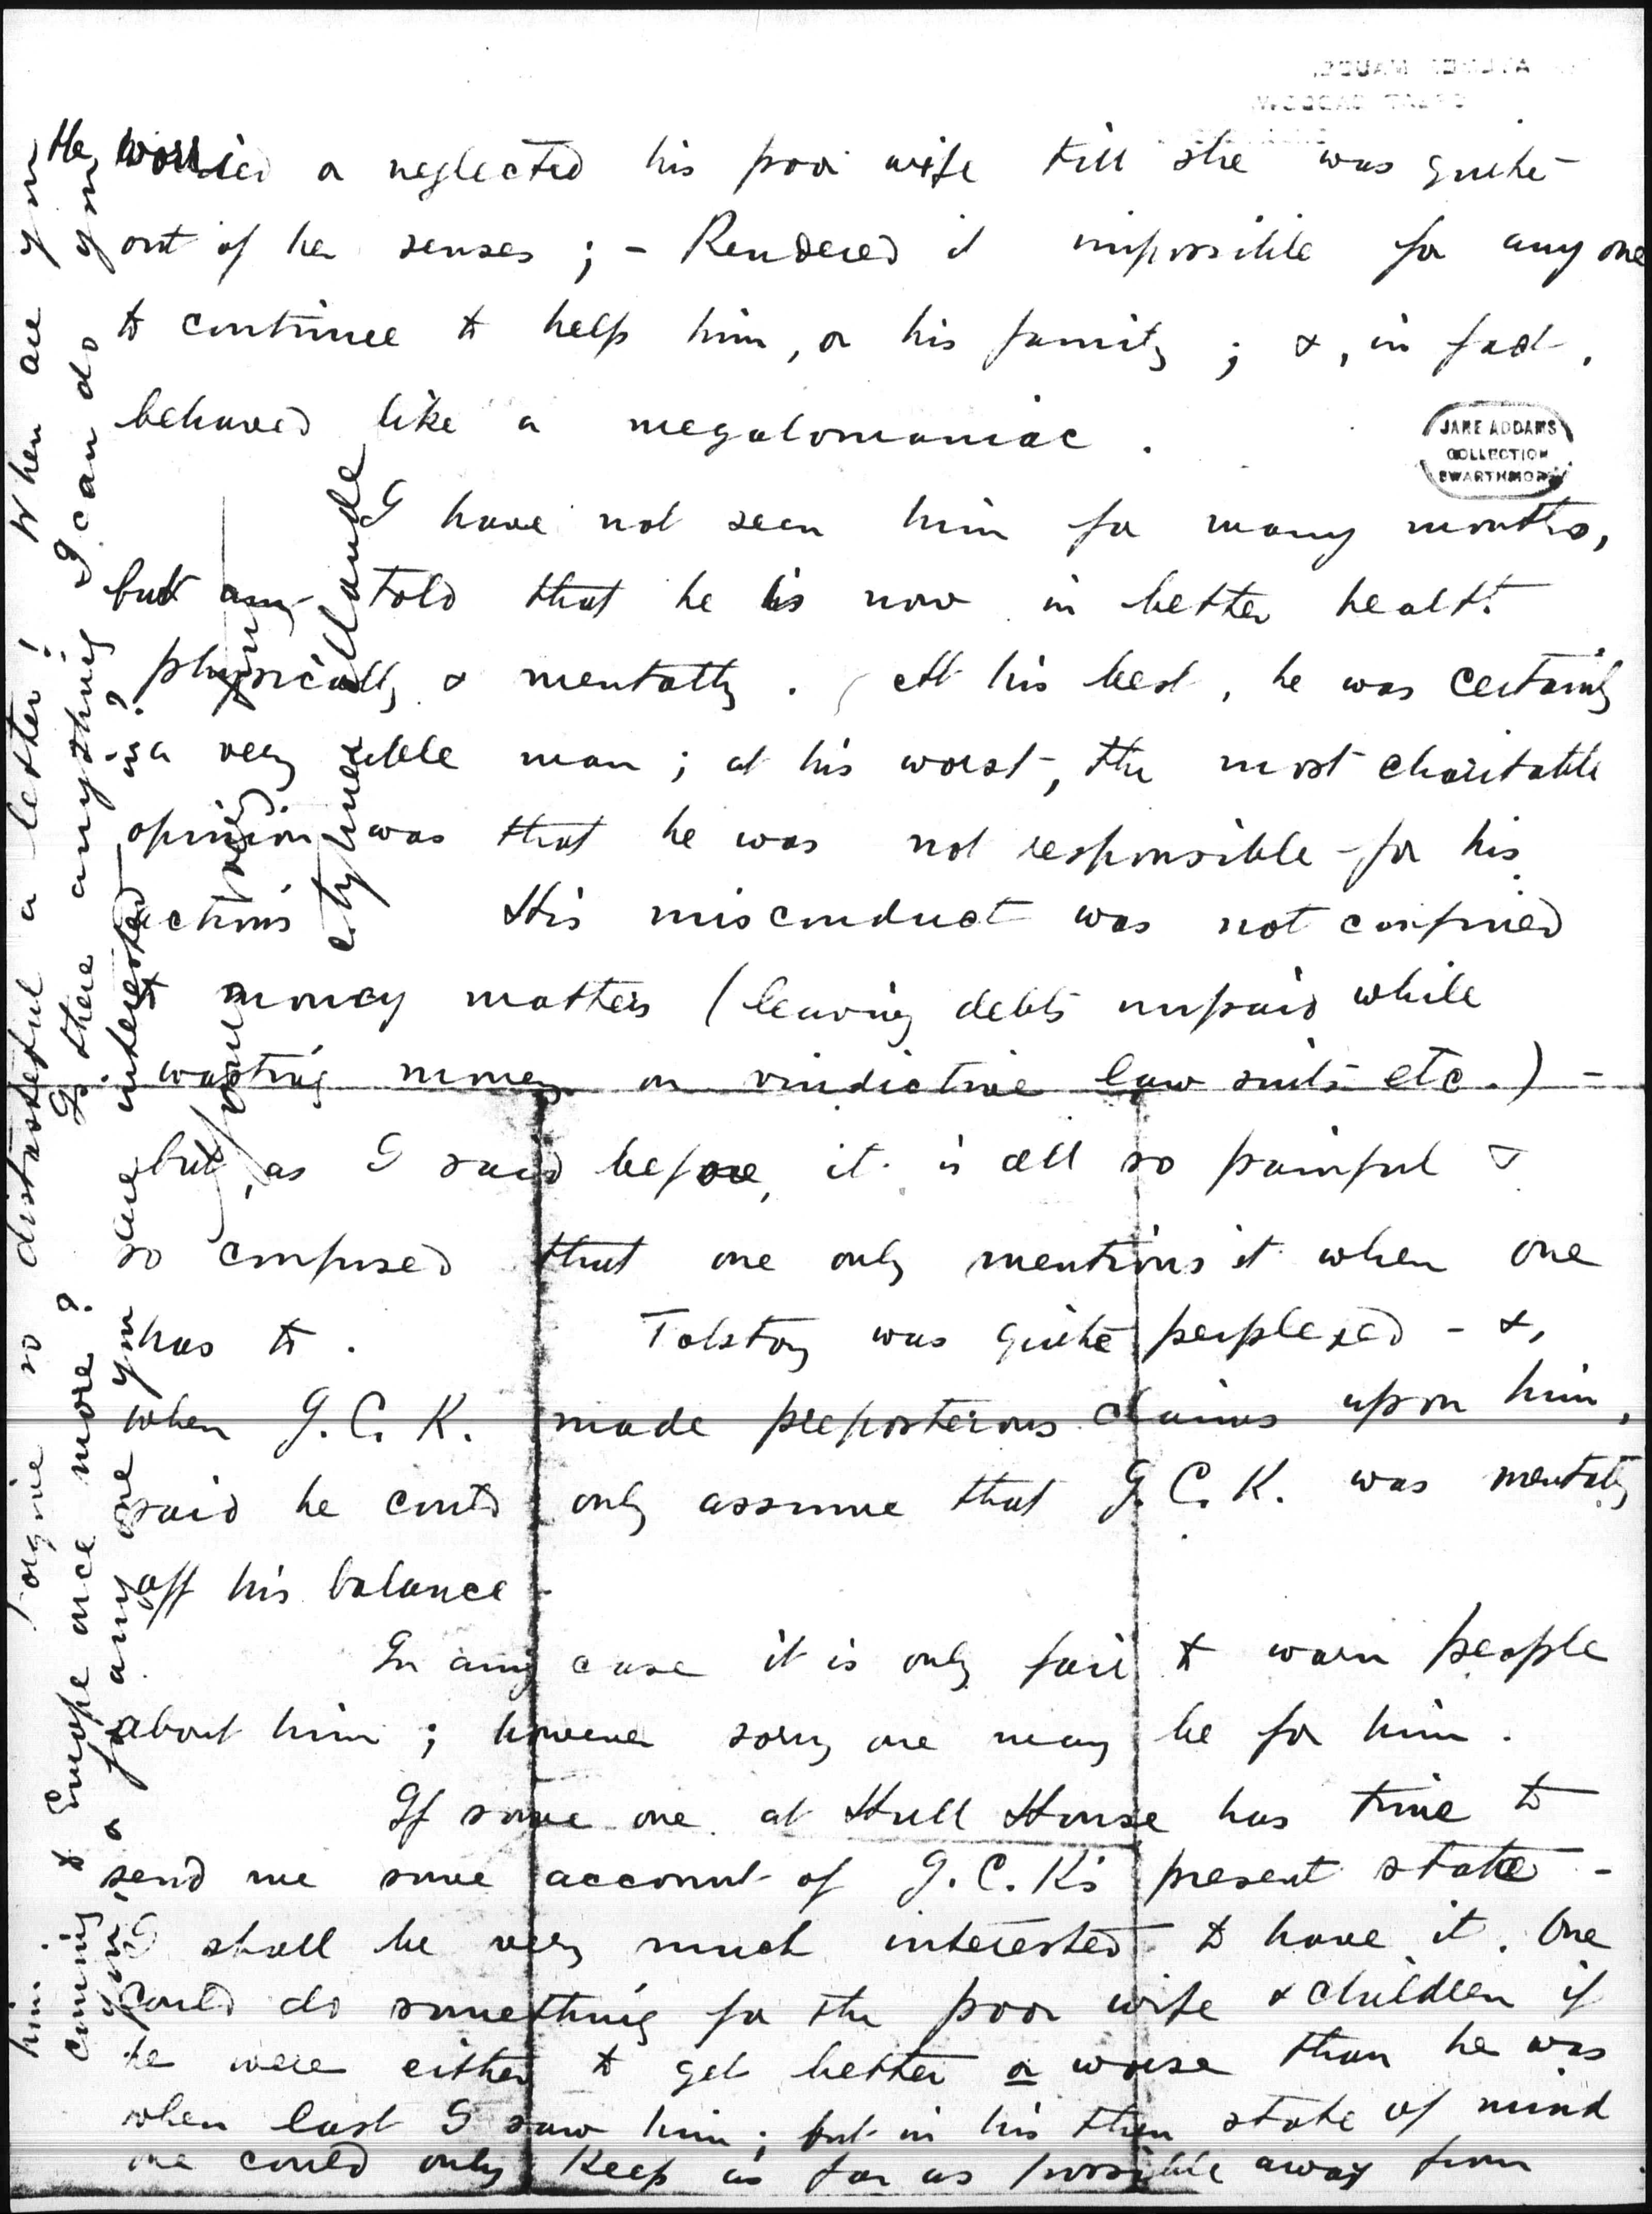 He worried or neglected his poor wife till she was quite
out of her senses ; - Rendered it impossible for any one
to continue to help him, or his family ; &, in fact,
behaved like a megalomaniac .
JANE ADDAMS
COLLECTION
SWARTHMORE
I have not seen him for many months,
but am told that he is now in better health
physically & mentally . At his best , he was certainly
a very able man ; at his worst, the most charitable
opinion was that he was not responsible for his
actions His misconduct was not confined
to money matters (leaving debts unpaid while
wasting money on vindictive law suits etc.) -
but, as I said before, it is all so painful &
so confused that one only mentions it when one
has to . Tolstoy was quite perplexed - &,
when G. C. K. made preposterous claims upon him,
said he could only assume that G. C. K. was mentally
off his balance -
In any case it is only fair to warn people
about him ; however sorry one may be for him .
If some one at Hull House has time to
send me some account of G. C. K's present state -
I shall be very much interested to have it . One
could do something for the poor wife & children if
he were either to get better or worse than he was
when last I saw him ; but in his then state of mind
one could only keep as far as possible away from
him . Forgive so distasteful a letter ! When are you
coming to Europe once more ? Is there anything I can do
you, or for any one you are interested in ?
Yours very
Aylmer Maude